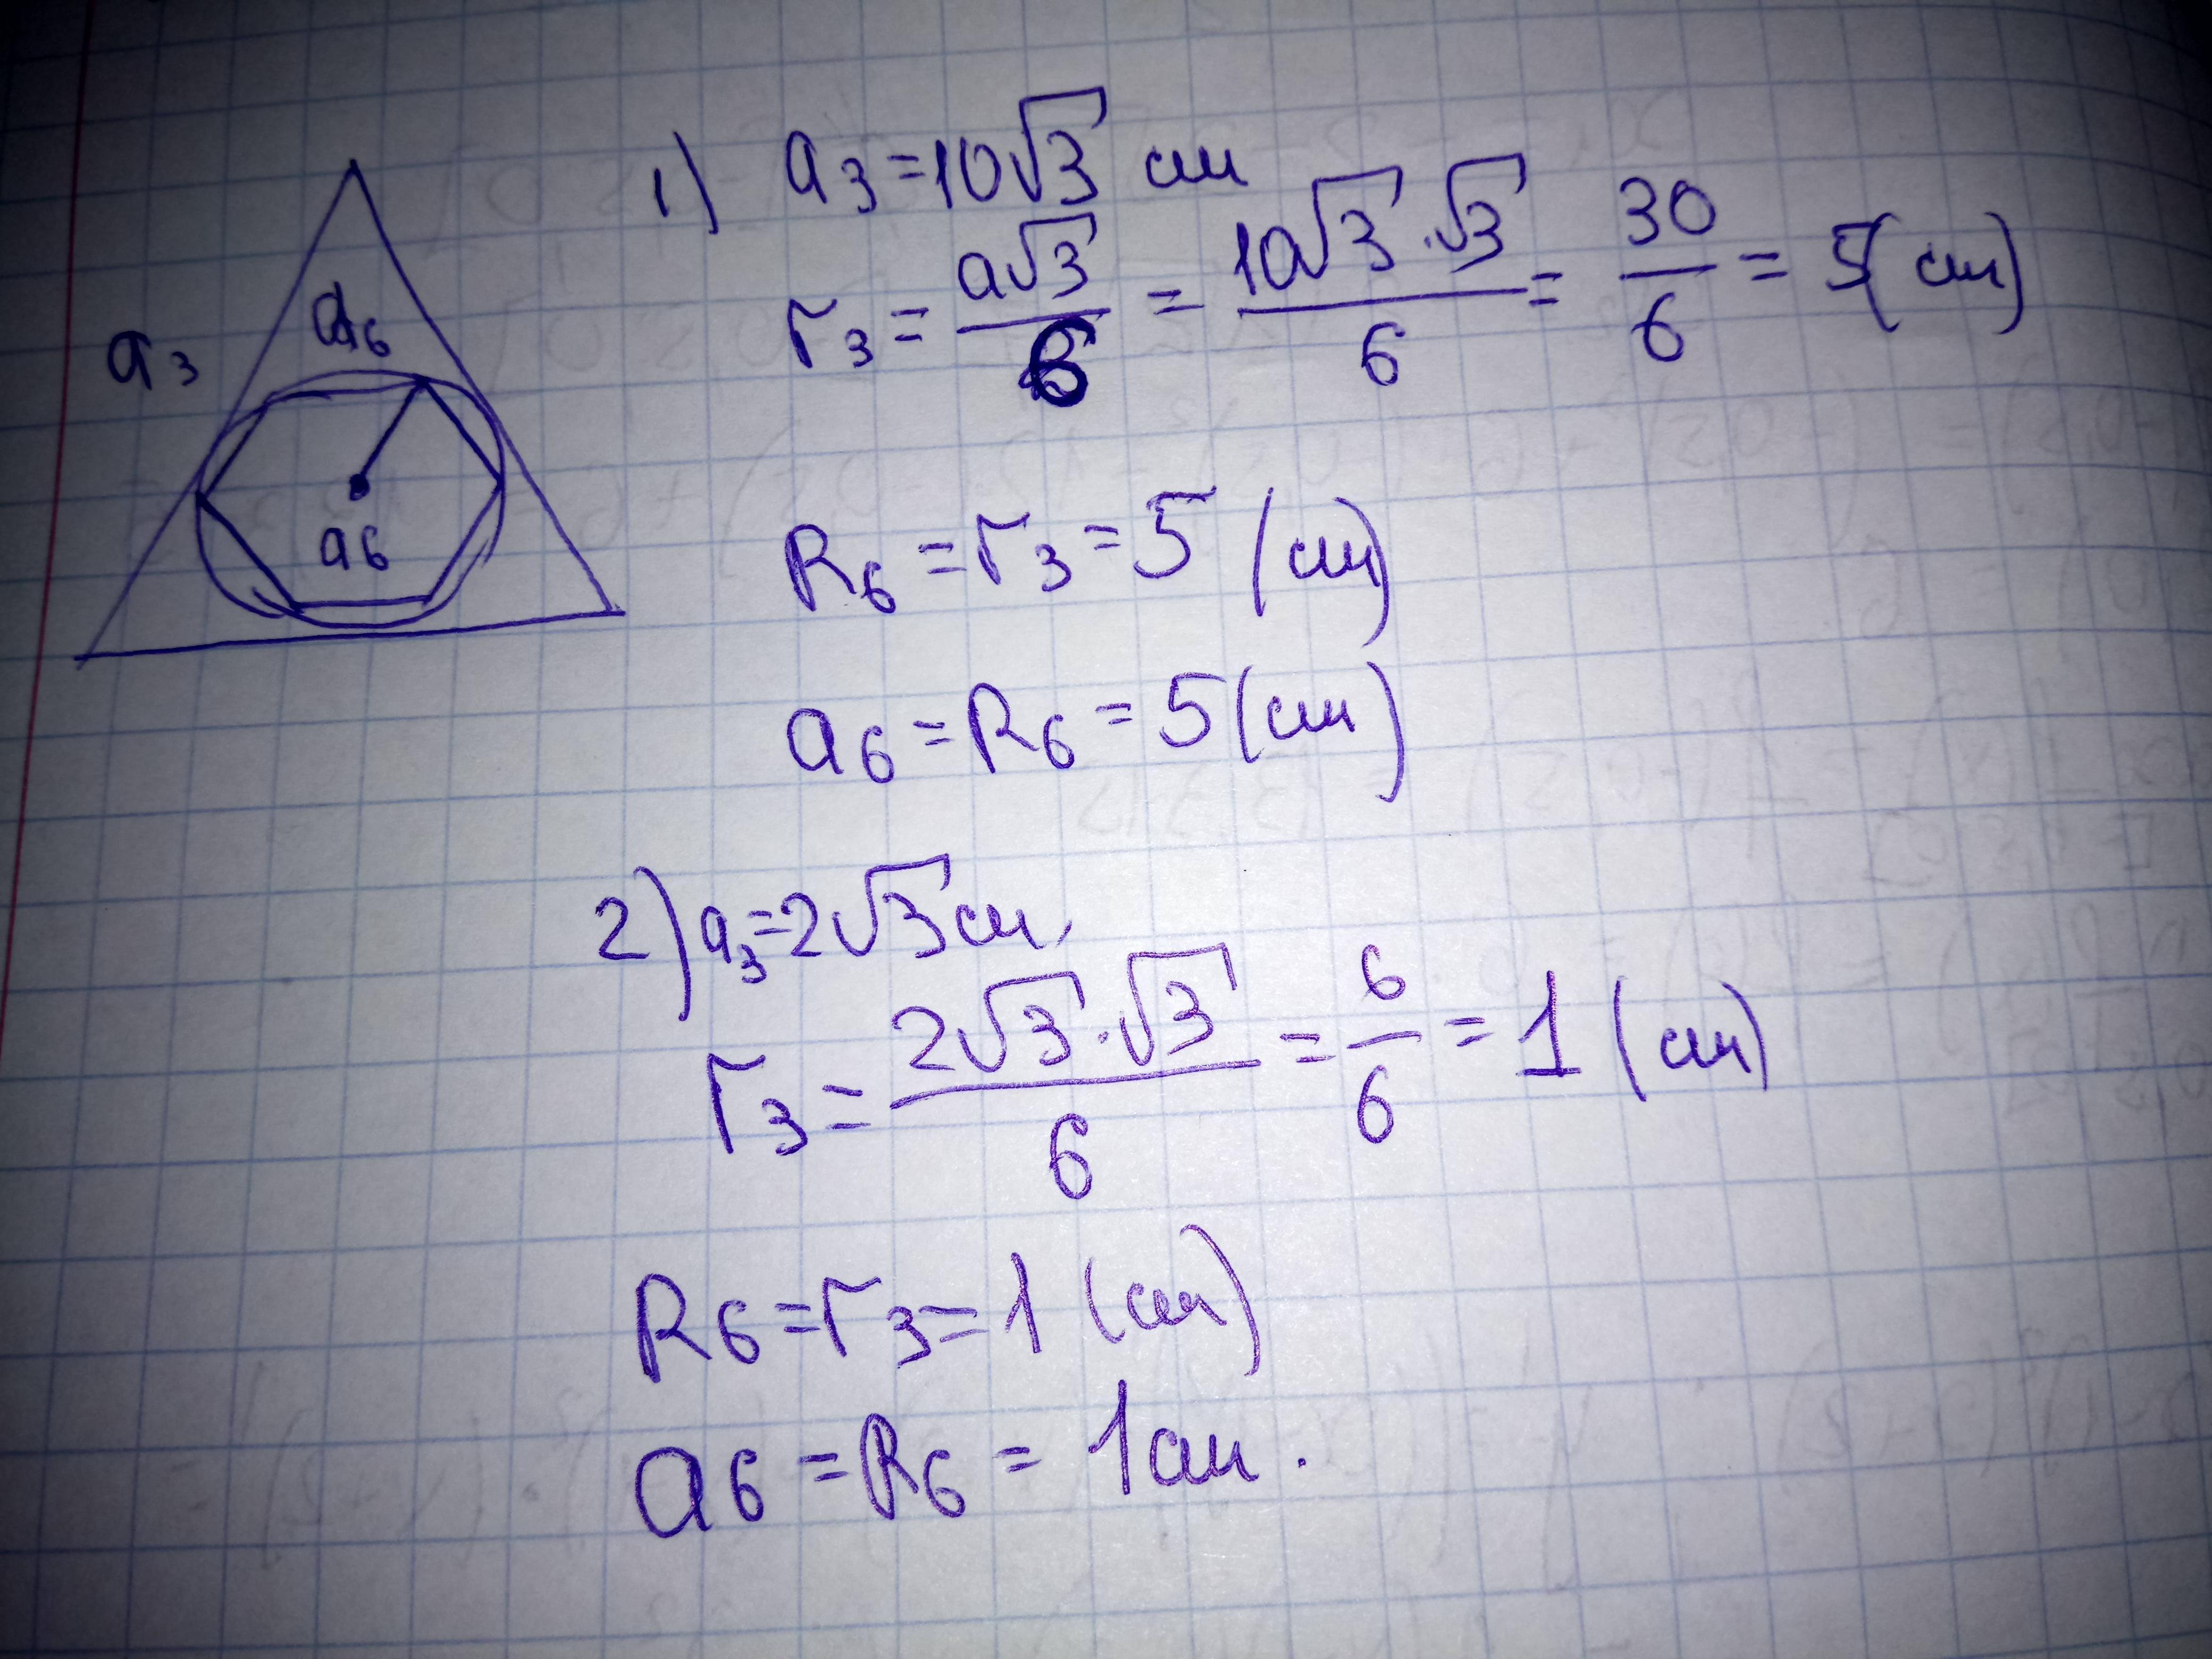 a₃
a₆
a₆
1) a₃ = 10√3 см
r₃ = a√3/6 = 10√3·√3/6 = 30/6 = 5(см)
R₆ = r₃ = 5 (см)
a₆ = R₆ = 5(см)
2) a₃ = 2√3 см,
r₃ = 2√3·√3/6 = 6/6 = 1 (см)
R₆ = r₃ = 1 (см)
a₆ = R₆ = 1 см.